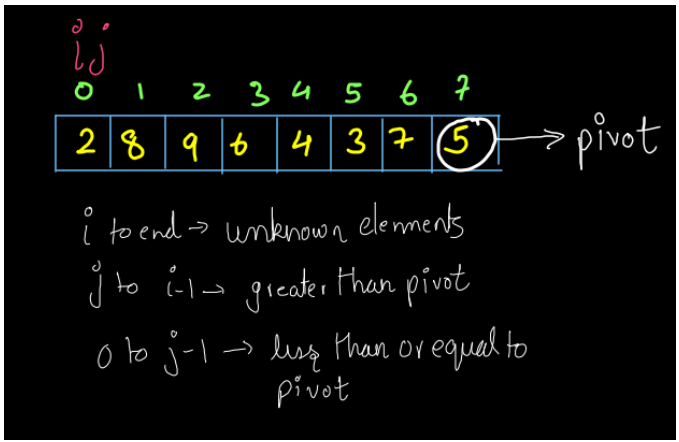 i j
0 1 2 3 4 5 6 7
2 8 9 6 4 3 7 5 → pivot
i to end → unknown elements
j to i-1 → greater than pivot
0 to j-1 → less than or equal to
pivot